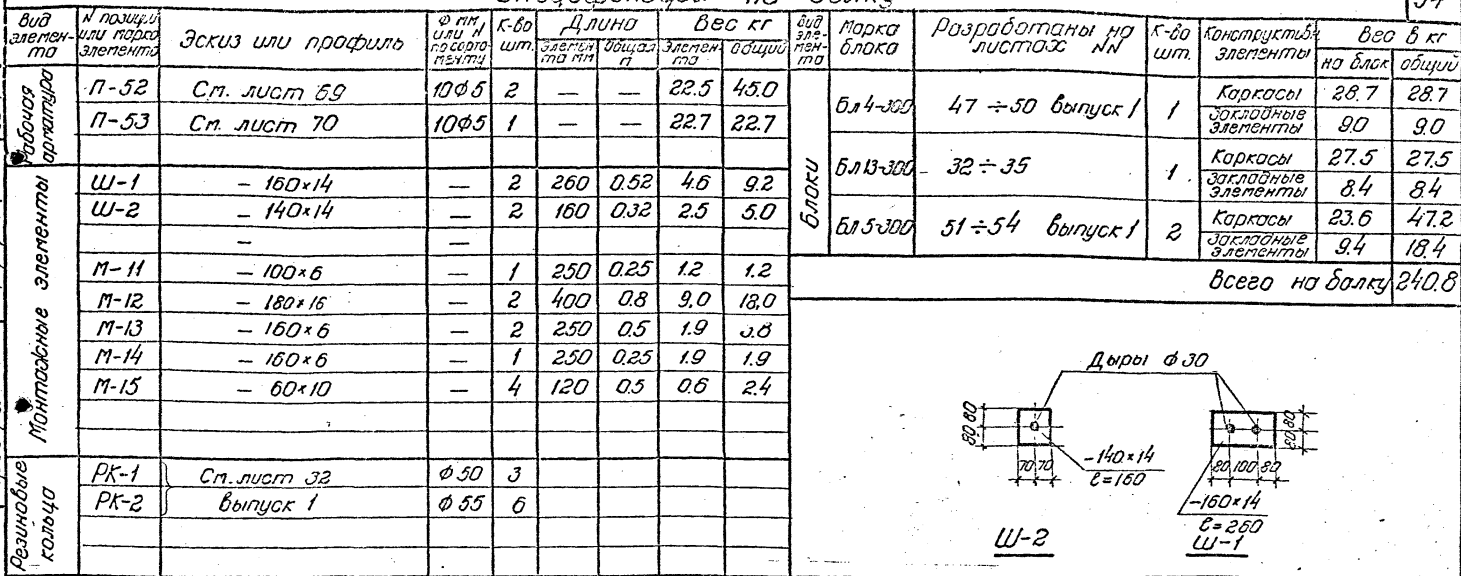 на балку
54
Вид элемен-та | N позиции или марка элемента | Эскиз или профиль | Ф мм, или N по сорта-менту | К-во шт. | Длина | Вес кг
Элемен та мм | Общая м | Элемен та | Общий
Рабочая арматура
П-52 | См. лист 69 | 10Ф5 | 2 | — | — | 22.5 | 45.0
П-53 | См. лист 70 | 10Ф5 | 1 | — | — | 22.7 | 22.7
Монтажные элементы
Ш-1 | – 160×14 | — | 2 | 260 | 0.52 | 4.6 | 9.2
Ш-2 | – 140×14 | — | 2 | 160 | 0.32 | 2.5 | 5.0
– | —
М-11 | – 100×6 | — | 1 | 250 | 0.25 | 1.2 | 1.2
М-12 | – 180×16 | — | 2 | 400 | 0.8 | 9.0 | 18.0
М-13 | – 160×6 | — | 2 | 250 | 0.5 | 1.9 | 3.8
М-14 | – 160×6 | — | 1 | 250 | 0.25 | 1.9 | 1.9
М-15 | – 60×10 | — | 4 | 120 | 0.5 | 0.6 | 2.4
Резиновые кольца
РК-1 | См. лист 32 | Ф 50 | 3
РК-2 | выпуск 1 | Ф 55 | 6
Вид эле-мен-та | Марка блока | Разработаны на листах NN | К-во шт. | Конструктивн. элементы | Вес в кг
на блок | общий
Блоки
Бл 4-300 | 47 ÷ 50 выпуск 1 | 1 | Каркасы | 28.7 | 28.7
Закладные элементы | 9.0 | 9.0
Бл 13-300 | 32 ÷ 35 | 1 | Каркасы | 27.5 | 27.5
Закладные элементы | 8.4 | 8.4
Бл 5-300 | 51 ÷ 54 выпуск 1 | 2 | Каркасы | 23.6 | 47.2
Закладные элементы | 9.4 | 18.4
Всего на балку 240.8
Дыры Ф 30
80 80
70 70
–140×14
ℓ=160
Ш-2
80 100 80
80 80
–160×14
ℓ=260
Ш-1